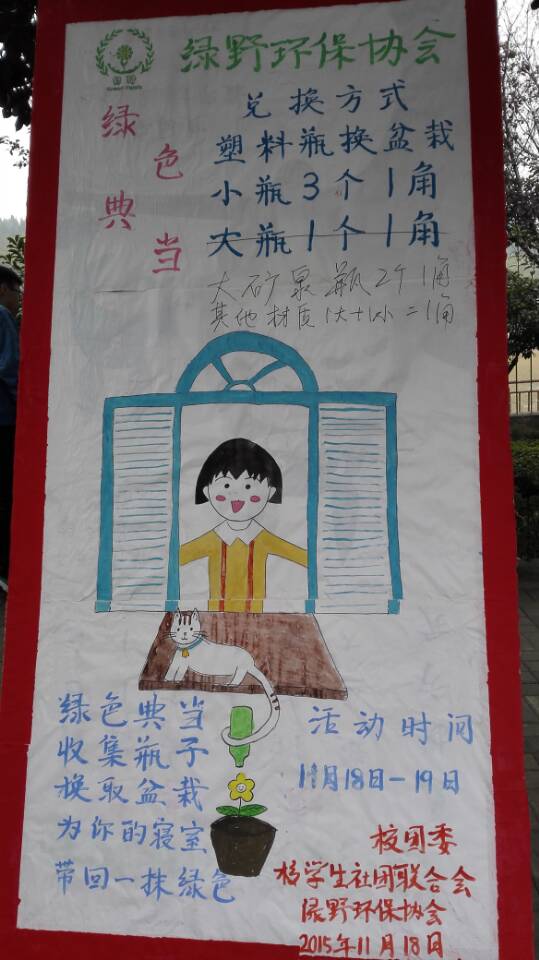 绿野环保协会
绿色典当
兑换方式
塑料瓶换盆栽
小瓶3个1角
大瓶1个1角
大矿泉瓶2个1角
其他材质1大+1小=1角
绿色典当
收集瓶子
换取盆栽
为你的寝室
带回一抹绿色
活动时间
11月18日-19日
校团委
校学生社团联合会
绿野环保协会
2015年11月18日